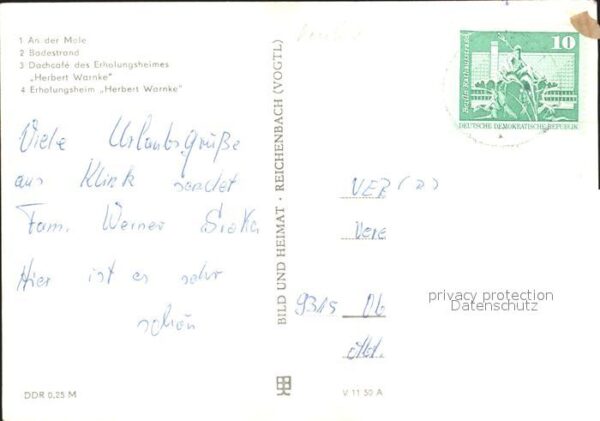 1 An der Mole
2 Badestrand
3 Dachcafé des Erholungsheimes
„Herbert Warnke"
4 Erholungsheim „Herbert Warnke"
Viele Urlaubsgrüße
aus Klink sendet
Fam. Werner
Hier ist es sehr
schön
DDR 0,25 M
BILD UND HEIMAT · REICHENBACH (VOGTL)
V 11 50 A
10
Berlin Rathausstraße
DEUTSCHE DEMOKRATISCHE REPUBLIK
VEB (B)
9315 Ob
privacy protection
Datenschutz